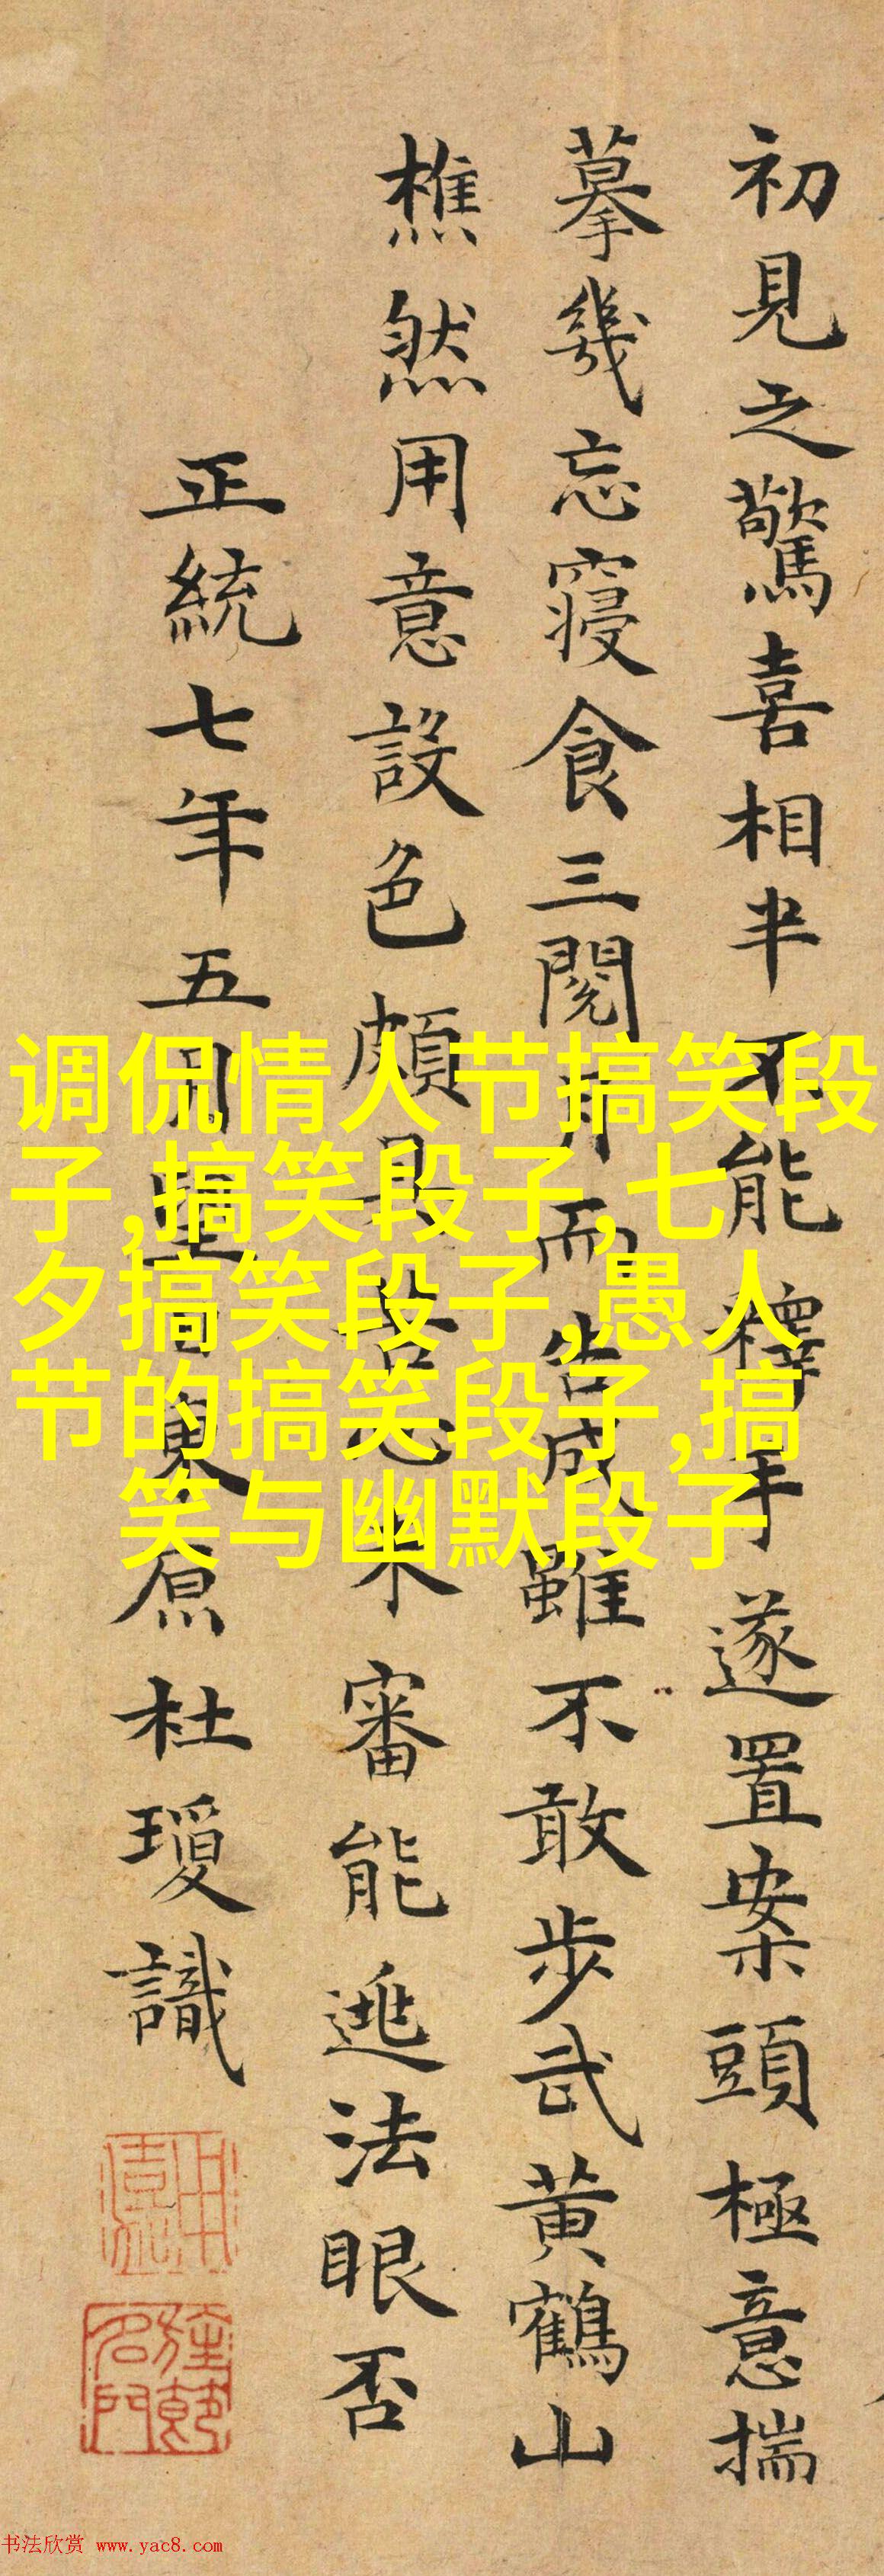 初見之驚喜相半不能釋手遂置案頭極意揣
摹幾忘寢食三閱月而告成雖不敢步武黃鶴山
樵然用意設色頗具苦心未審能逃法眼否
正統七年五月望日東原杜瓊識
调侃情人节搞笑段
子,搞笑段子,七
夕搞笑段子,愚人
节的搞笑段子,搞
笑与幽默段子
书法欣赏 www.yac8.com